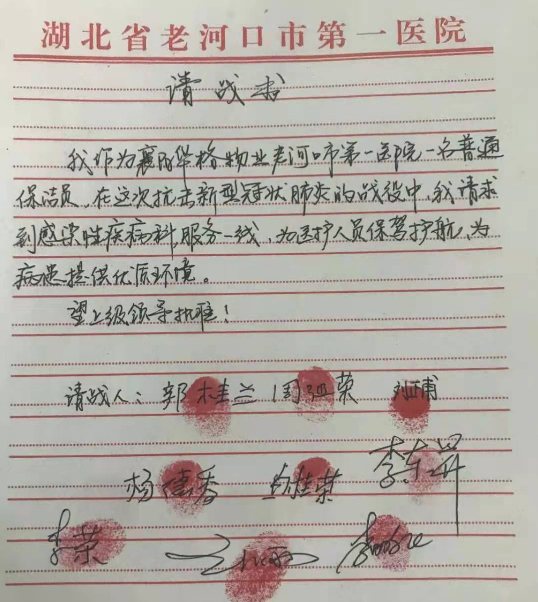 湖北省老河口市第一医院
请战书
我作为襄阳华格物业老河口市第一医院一名普通
保洁员,在这次抗击新型冠状肺炎的战役中,我请求
到感染性疾病科,服务一线,为医护人员保驾护航,为
病患提供优质环境。
望上级领导批准!
请战人:郭桂兰 周迎荣
杨德香 桂荣 李东升
李荣